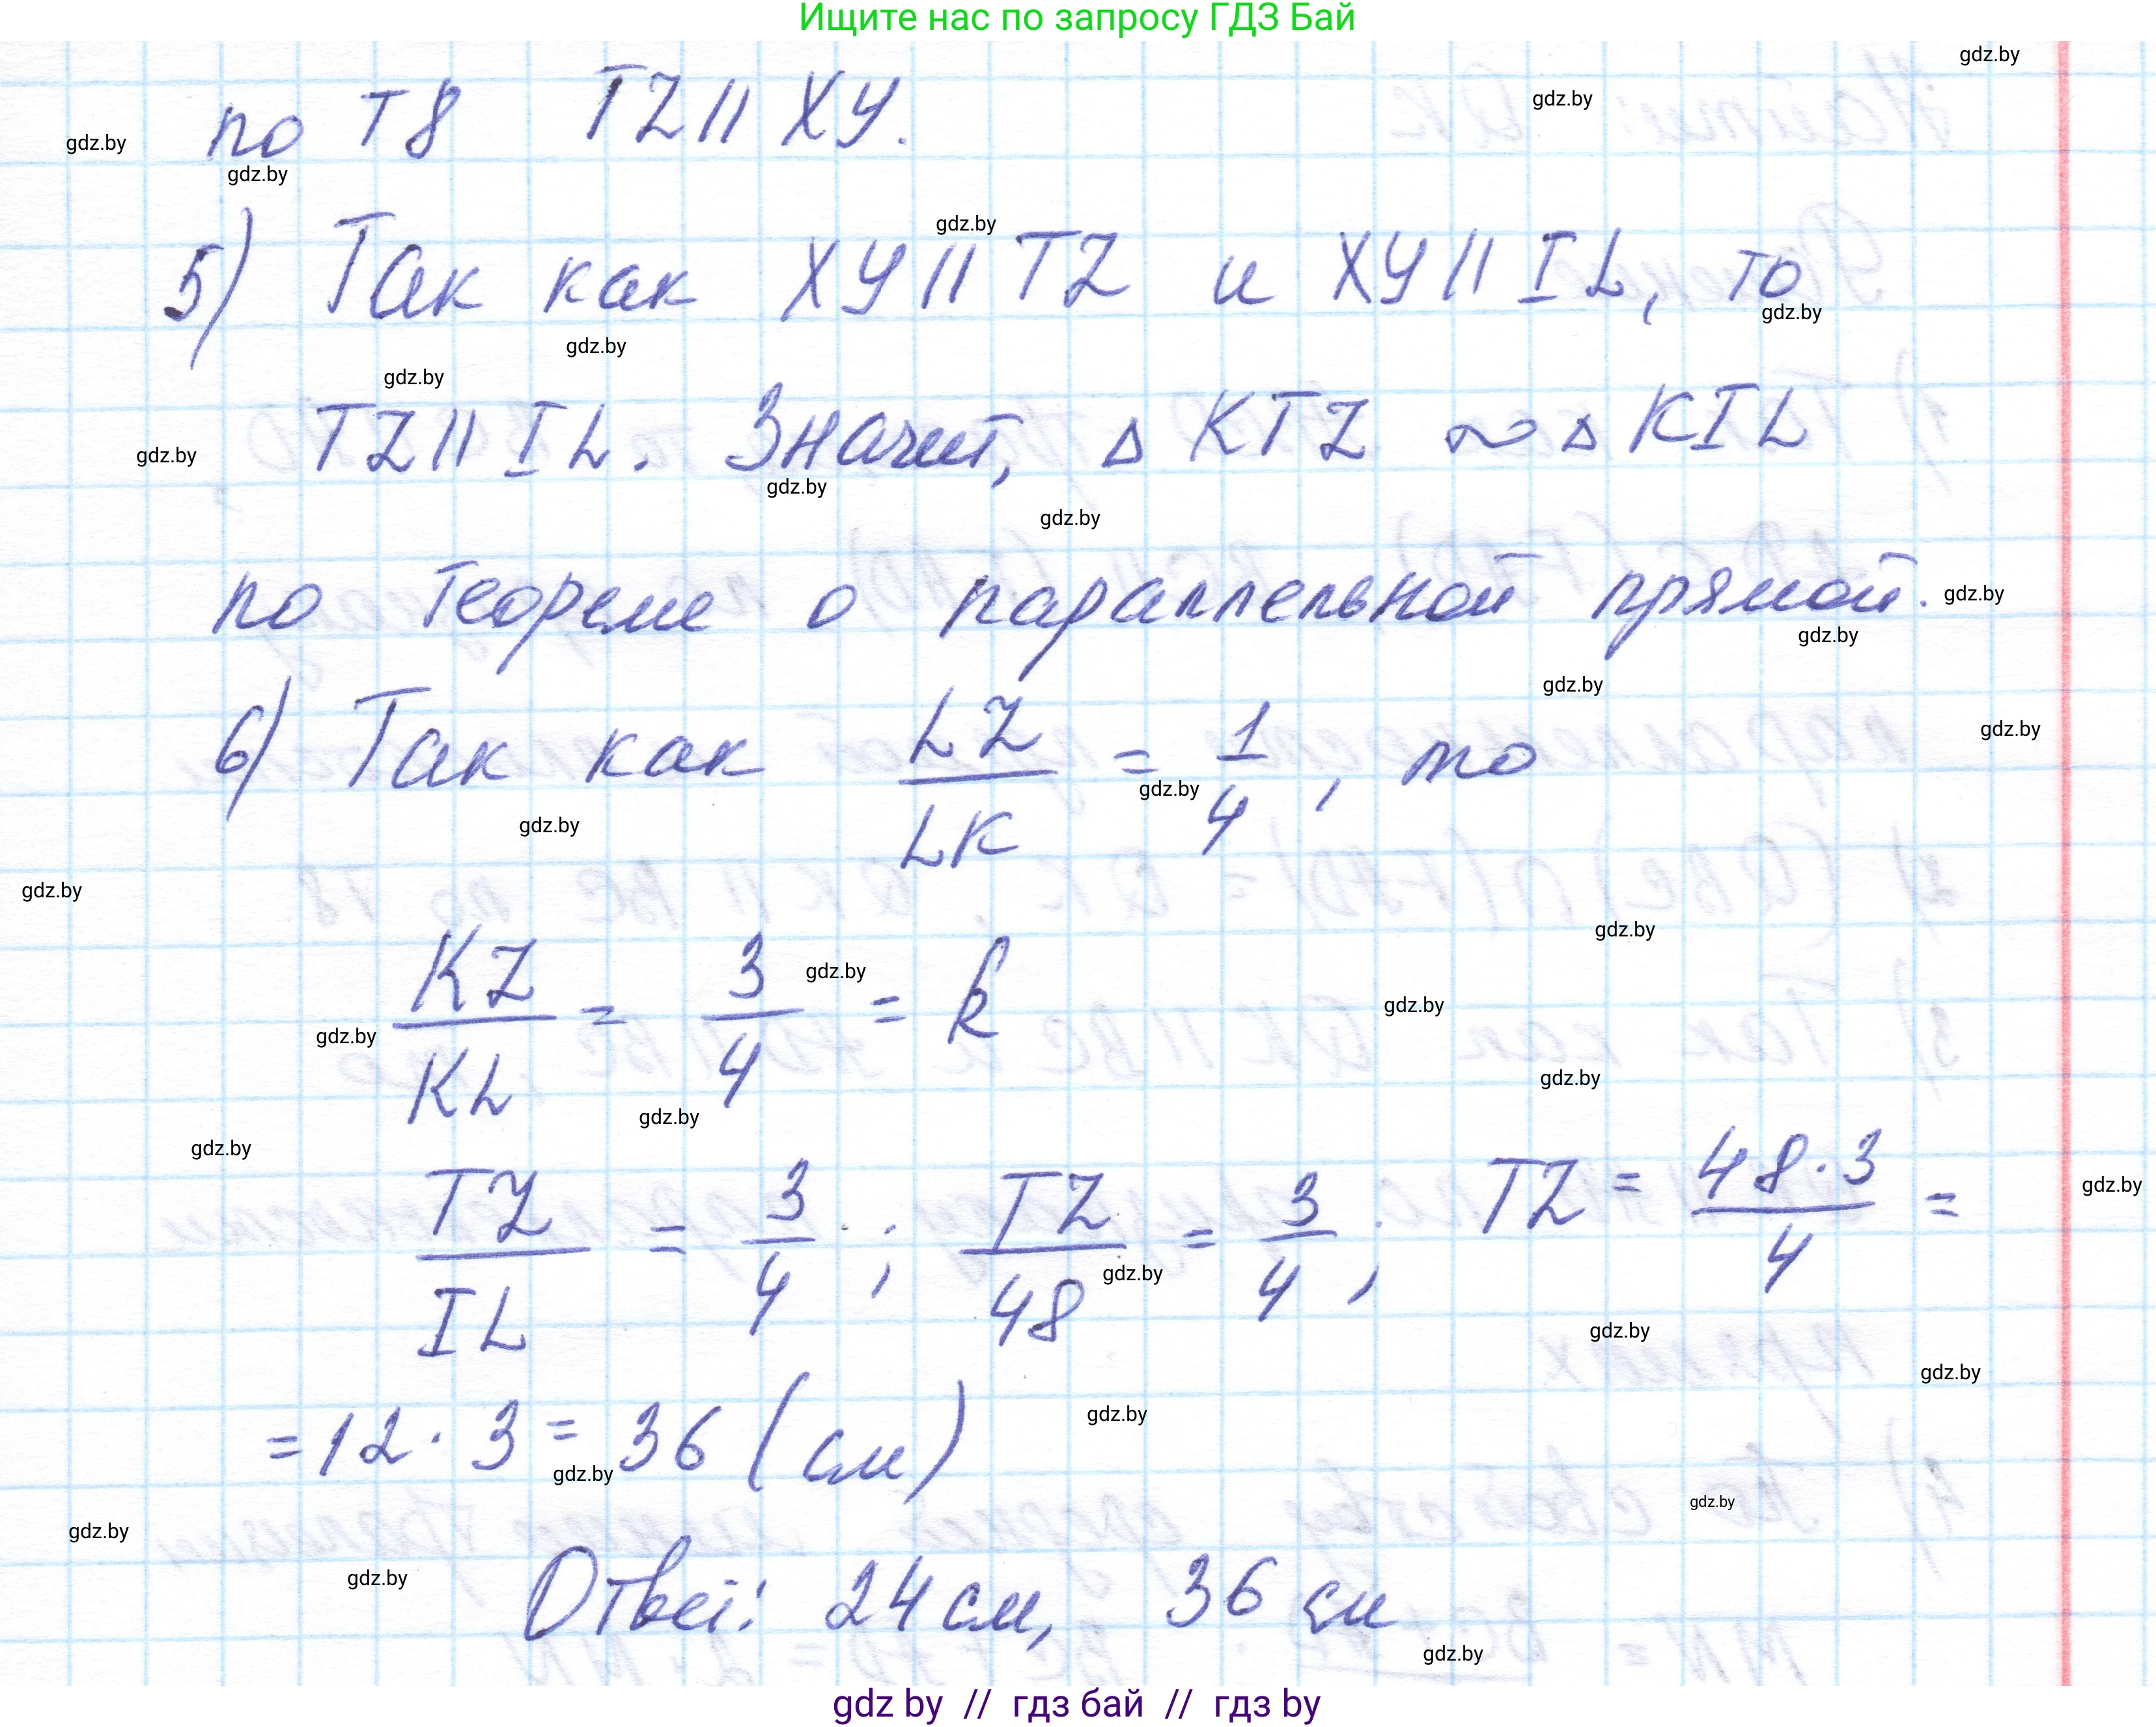 Ищите нас по запросу ГДЗ Бай
по Т8 TZ || XY.
5) Так как XY || TZ и XY || IL, то
TZ || IL. Значит, △ KTZ ∾ △ KIL
по теореме о параллельной прямой.
6) Так как LZ/LK = 1/4, то
KZ/KL = 3/4 = k
TZ/IL = 3/4; TZ/48 = 3/4; TZ = 48·3/4 =
= 12 · 3 = 36 (см)
Ответ: 24 см, 36 см
gdz by // гдз бай // гдз by